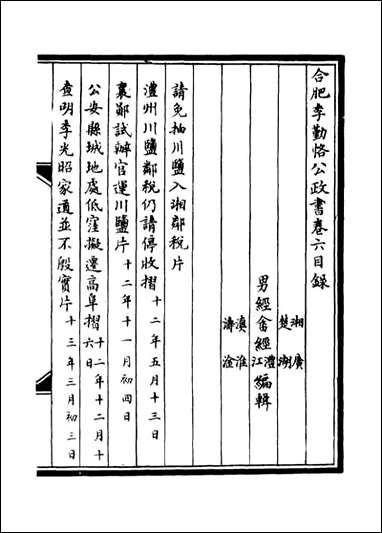 合肥李勤恪公政書卷六目録
湘 廣
楚 湖
男經畬經澧江編輯
滇 淮
濤 淦
請免抽川鹽入湘鄰稅片
澧州川鹽鄰稅仍請停收摺 十二年五月十三日
襄鄖試辦官運川鹽片 十二年十一月初四日
公安縣城地處低窪擬遷高阜摺 十二年十二月十六日
查明李光昭家道並不殷實片 十三年三月初三日